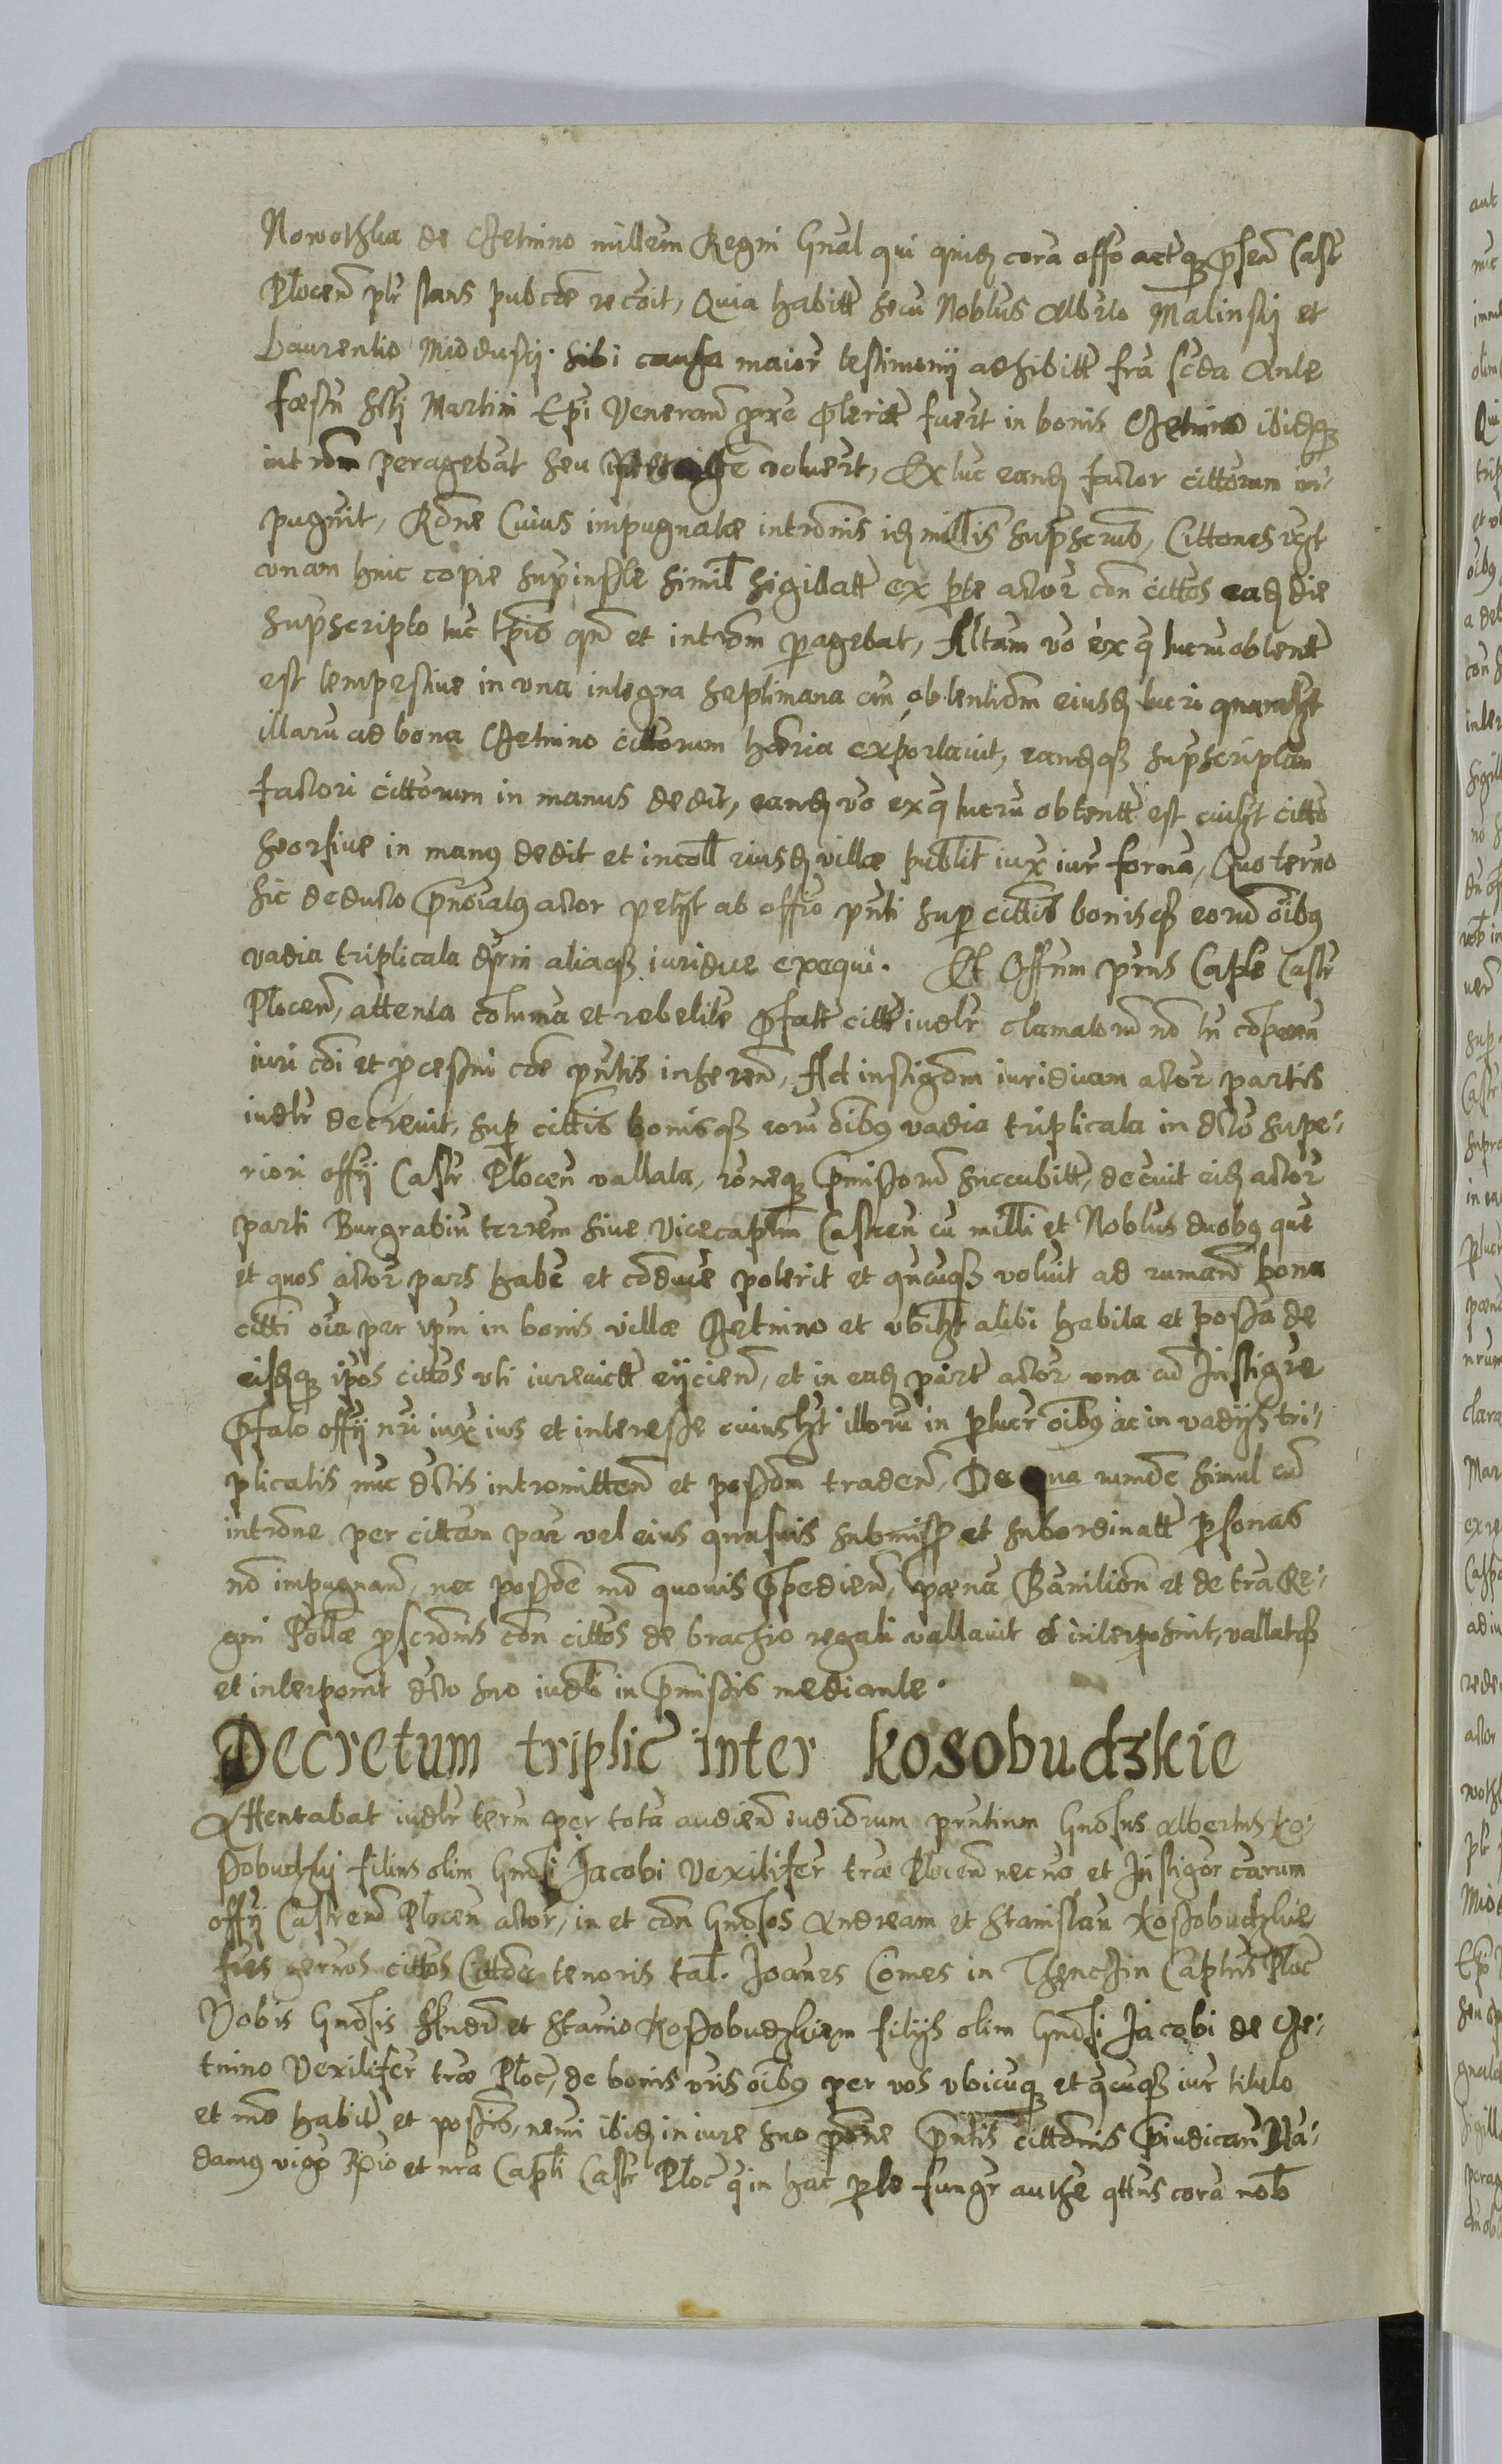 Nowothka de Cetnino millem Regni Gnal qui quid cora offo actqz psen Castr
Plocen plr stans pubcte recoit, Quia habitt secu Noblus Alberto Malinskj et
Laurentio Midduskj sibi causa maior testimonij adhibitt fra scda Ante
Festu Scti Martini Epi Veneran pxe pterit fuert in bonis Cetnino ibidqz
introm peragebat seu voluert, Ex tuc eand factor cittorum im-
pugnit, Rone Cuius impugnatae intromis id millis supscrius, Cittones
vnam huic copie supinste simil sigillatt ex pte actor con cittos ead die
supscripto tuc tpis qn et introm pagebat, Altam vo ex q lucru obtentt
est tempestiue in vna integra septimana an obtentiom eiusd lucri
illaru ad bona Cetnino cittorum haeria exportauit, eandqz supscriptam
factori cittorum in manus dedit, eand vo ex q lucru obtentt est cuilzt citto
seorsiue in manq dedit et incoll eiusd villae publit iux iur forma, Quo terno
sic deducto actor petyt ab offio pnti sup cittis bonisqz eoru oibq
vadia triplicata dcrni aliaqz iuridice exequi. Et Offum prns Capte Castr
Plocen, attenta cotuma et rebelite pfatt citt iudlr clamatoru no tn copaen
iuri coi et pcessui cte pntis inheren, Ad instigom iuridicam actor partis
iudlr decreuit, sup cittis bonisqz eoru oibq vadia triplicata in dcto supe-
riori offij Castr Plocen vallata, roneqz pmissoru succubitt, decreuit eid actor
parti Burgrabiu terrem siue Vicecaptm Castren cu millti et Noblus duobq que
et quos actor pars habe et conduce poterit et qncuqz voluit ad ruman bona
citti oia per ipm in bonis villae Cetnino et vbilzt alibi habita et possa de
eisdqz ipos cittos vti iureuictt eijcien, et in ead parte actor vna cu Instigre
pfato offij nri iux ius et interesse cuiuslzt illoru in plucr oibq ac in vadijs tri-
plicatis nuc dctis intromitten et possom traden, De qua rumone simul cu
introne per cittam par vel eius quasuis submiss et subordinatt psonas
no impugnan, nec possone mo quouis ppedien, paena Banitiom et de tra Re-
gni Pollae pscronis con cittos de brachio regali vallauit et interposuit, vallatqz
et interponit dcto suo iudli in pmissis mediante.
Decretum triplic inter Kosobudzkie
Attentabat iudlr term per tota audien iudiorum pntium Gnosus Albertus Ko-
sobudzkj filius olim Gnosi Jacobi Vexilifer trae Plocen necno et Instigor carum
offij Castren Plocen actor, in et con Gnosos Andream et Stanislau Kossobudzkie
fres germos cittos Cittoe tenoris tal. Joannes Comes in Thenczin Captus Ploc
Vobis Gnosis Andr et Stanio Kossobudzkiem filijs olim Gnosi Jacobi de Ce-
tnino Vexilifer trae Ploc, de bonis vris oibq per vos vbicuqz et qcuqz iur titulo
et mo habit et possis, nemi ibid in iure suo pone pntis cittonis piudican Ma-
damq vigo Rgio et nra Capti Castr Ploc q in hac pte fungr authe qttus cora nob